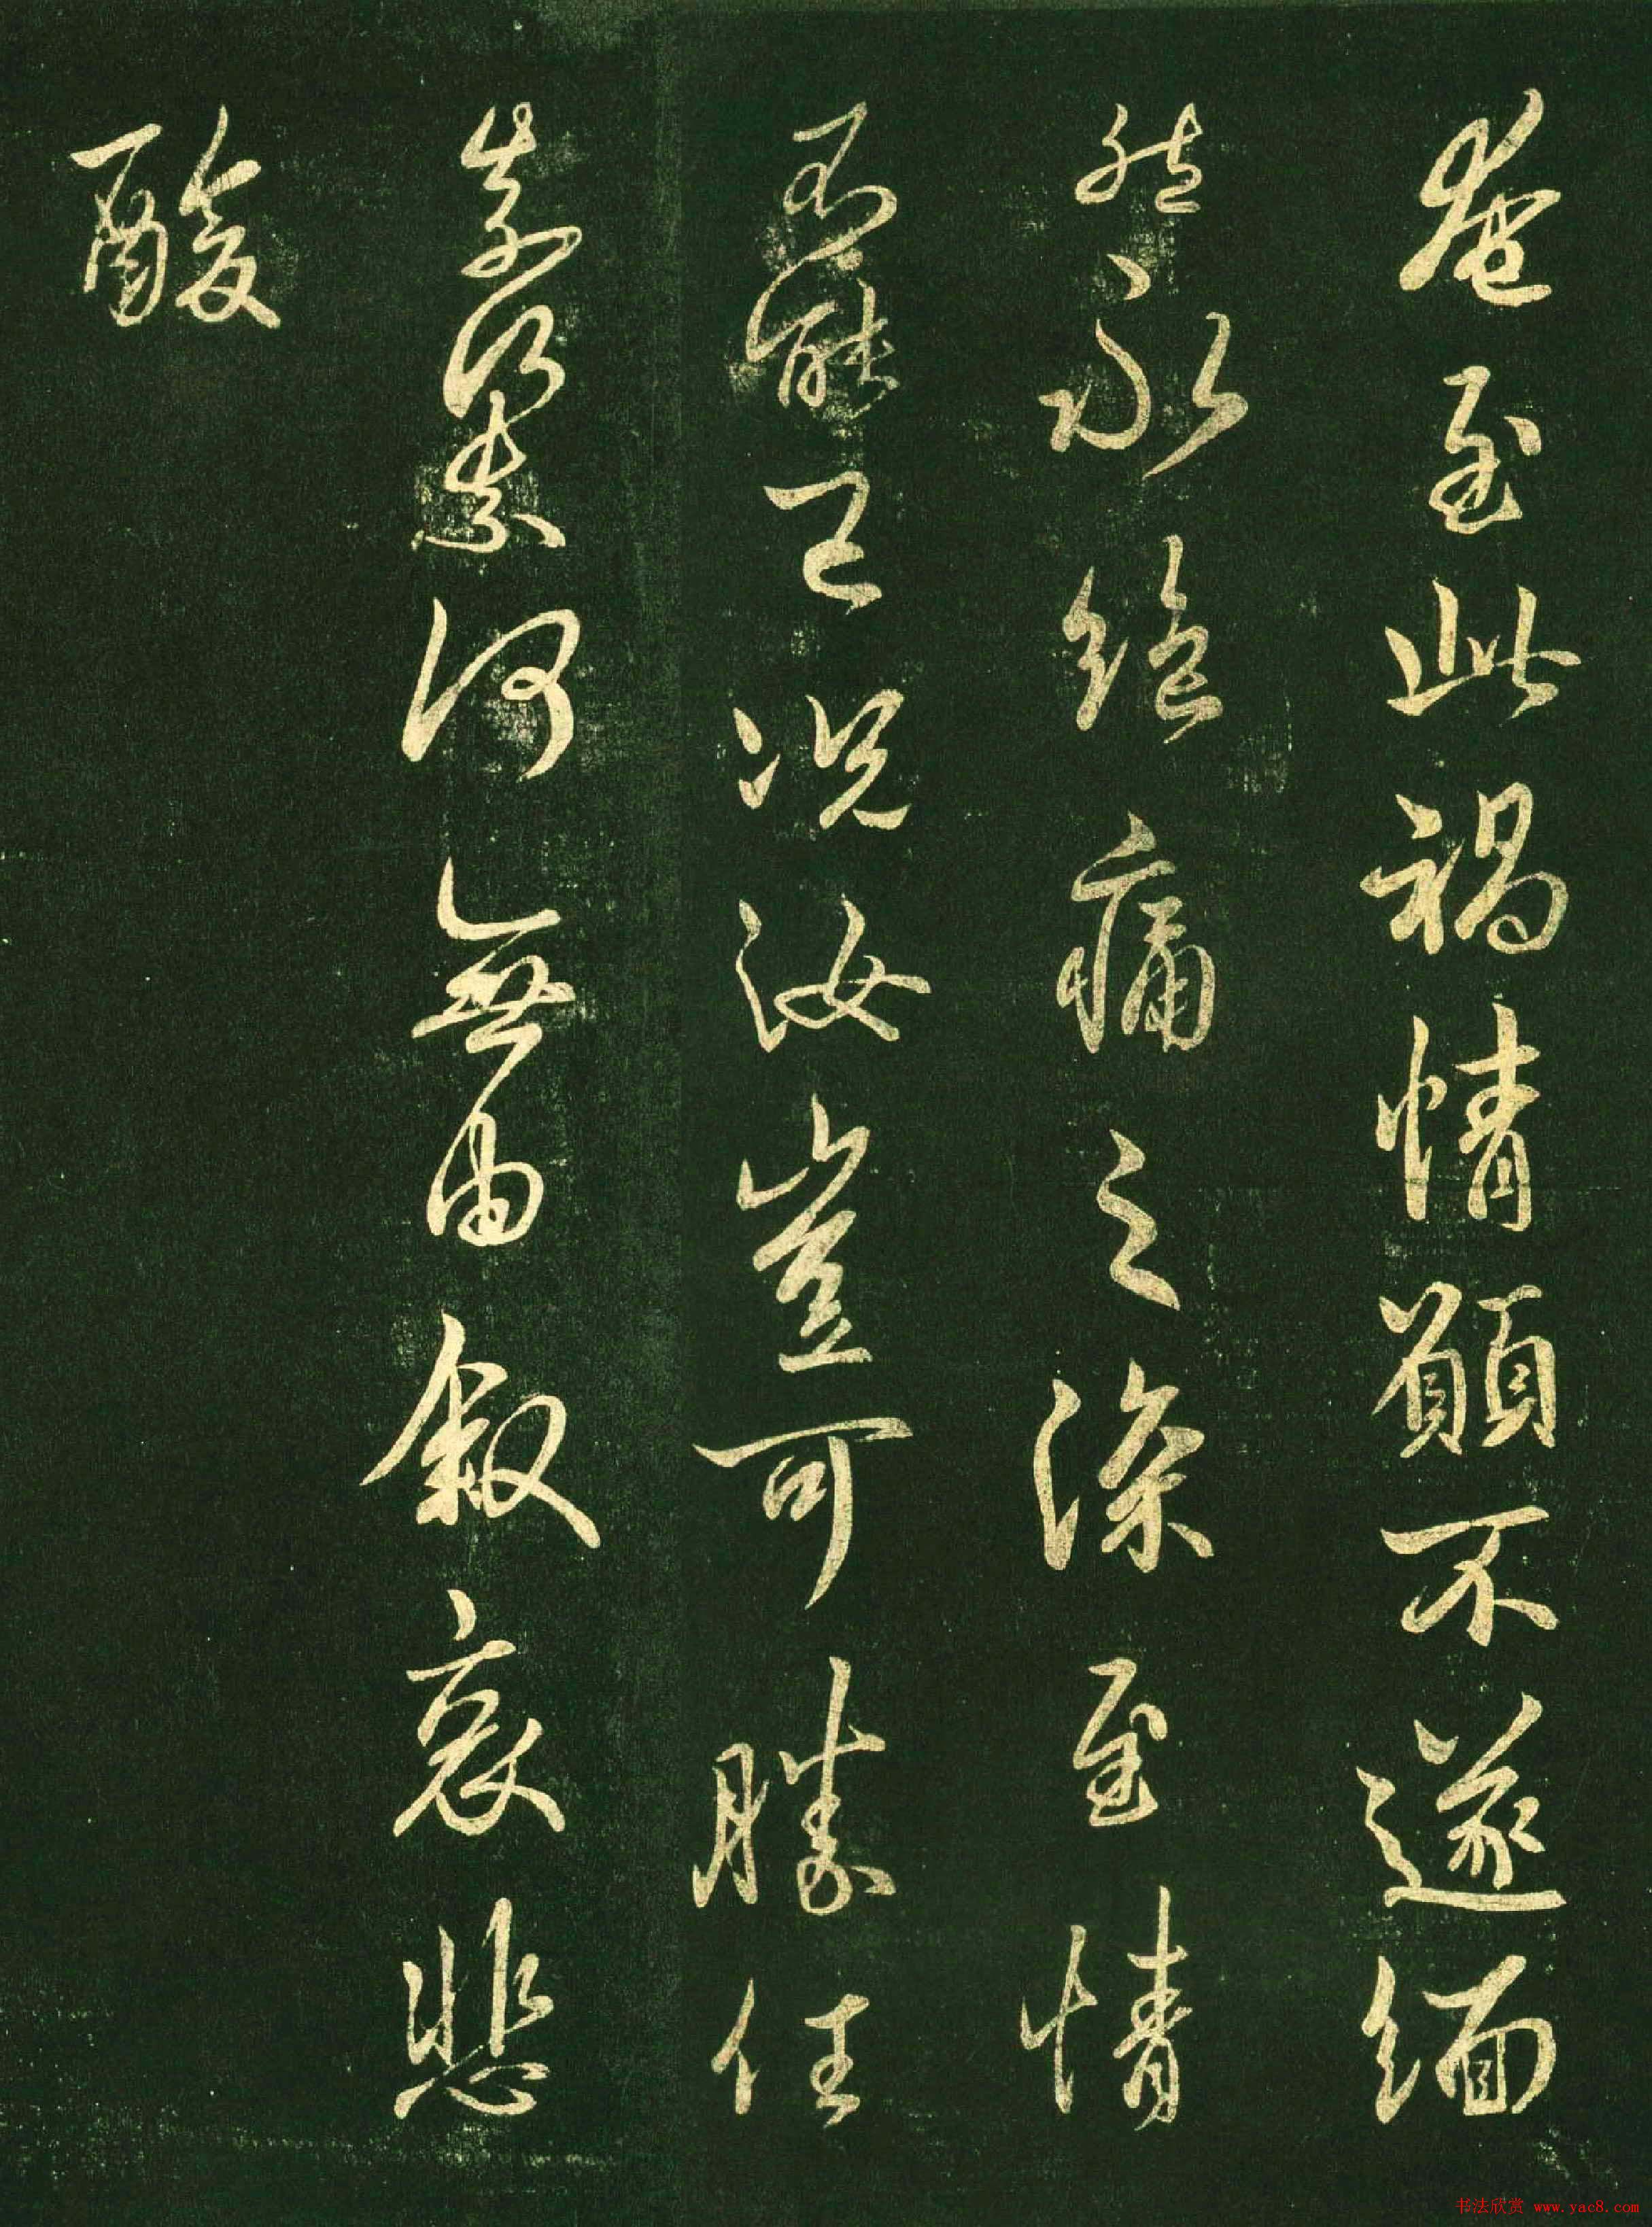 奄至此禍情願不遂緬
然永絕痛之深至情
不能已況汝豈可勝任
奈何奈何無由敘哀悲
酸
书法欣赏 www.yac8.com